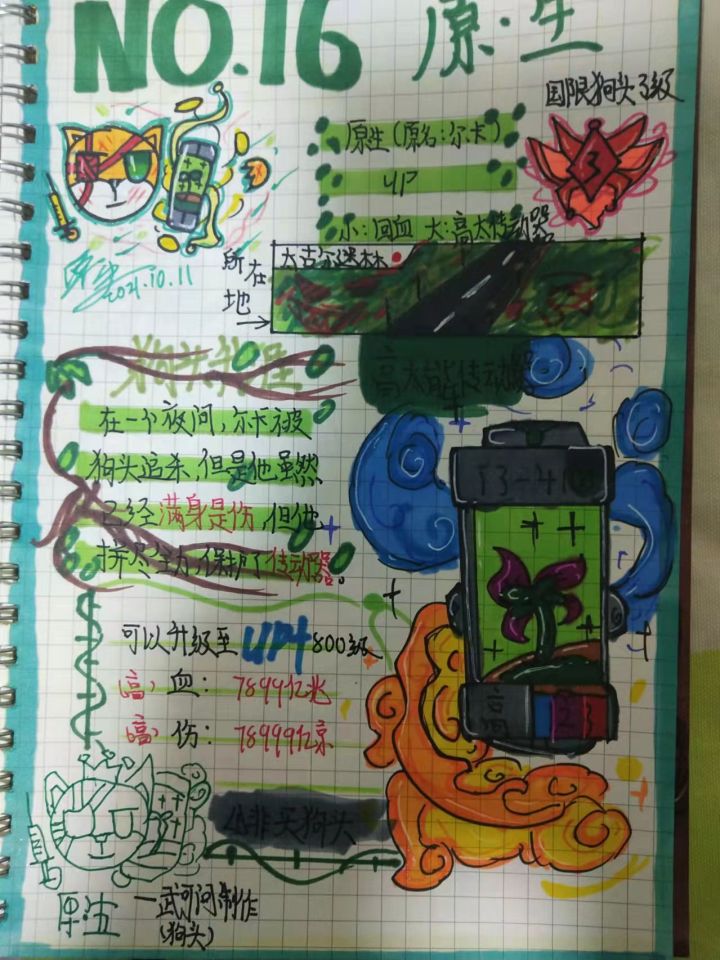 NO.16 原·生
国限狗头3级
3
原生(原名:尔卡)
UP
小:回血 大:高太传动器
所在地
太古尔迷林
2021.10.11
狗头升级
高太能传动器
在一个夜间,尔卡被
狗头追杀,但是他虽然
已经满身是伤,但他
拼尽全力,保护了传动器。
可以升级至UP4 800级
(高)血: 7899亿兆
(高)伤: 78999亿京
小非天狗头
原生
一武可问制作
(狗头)